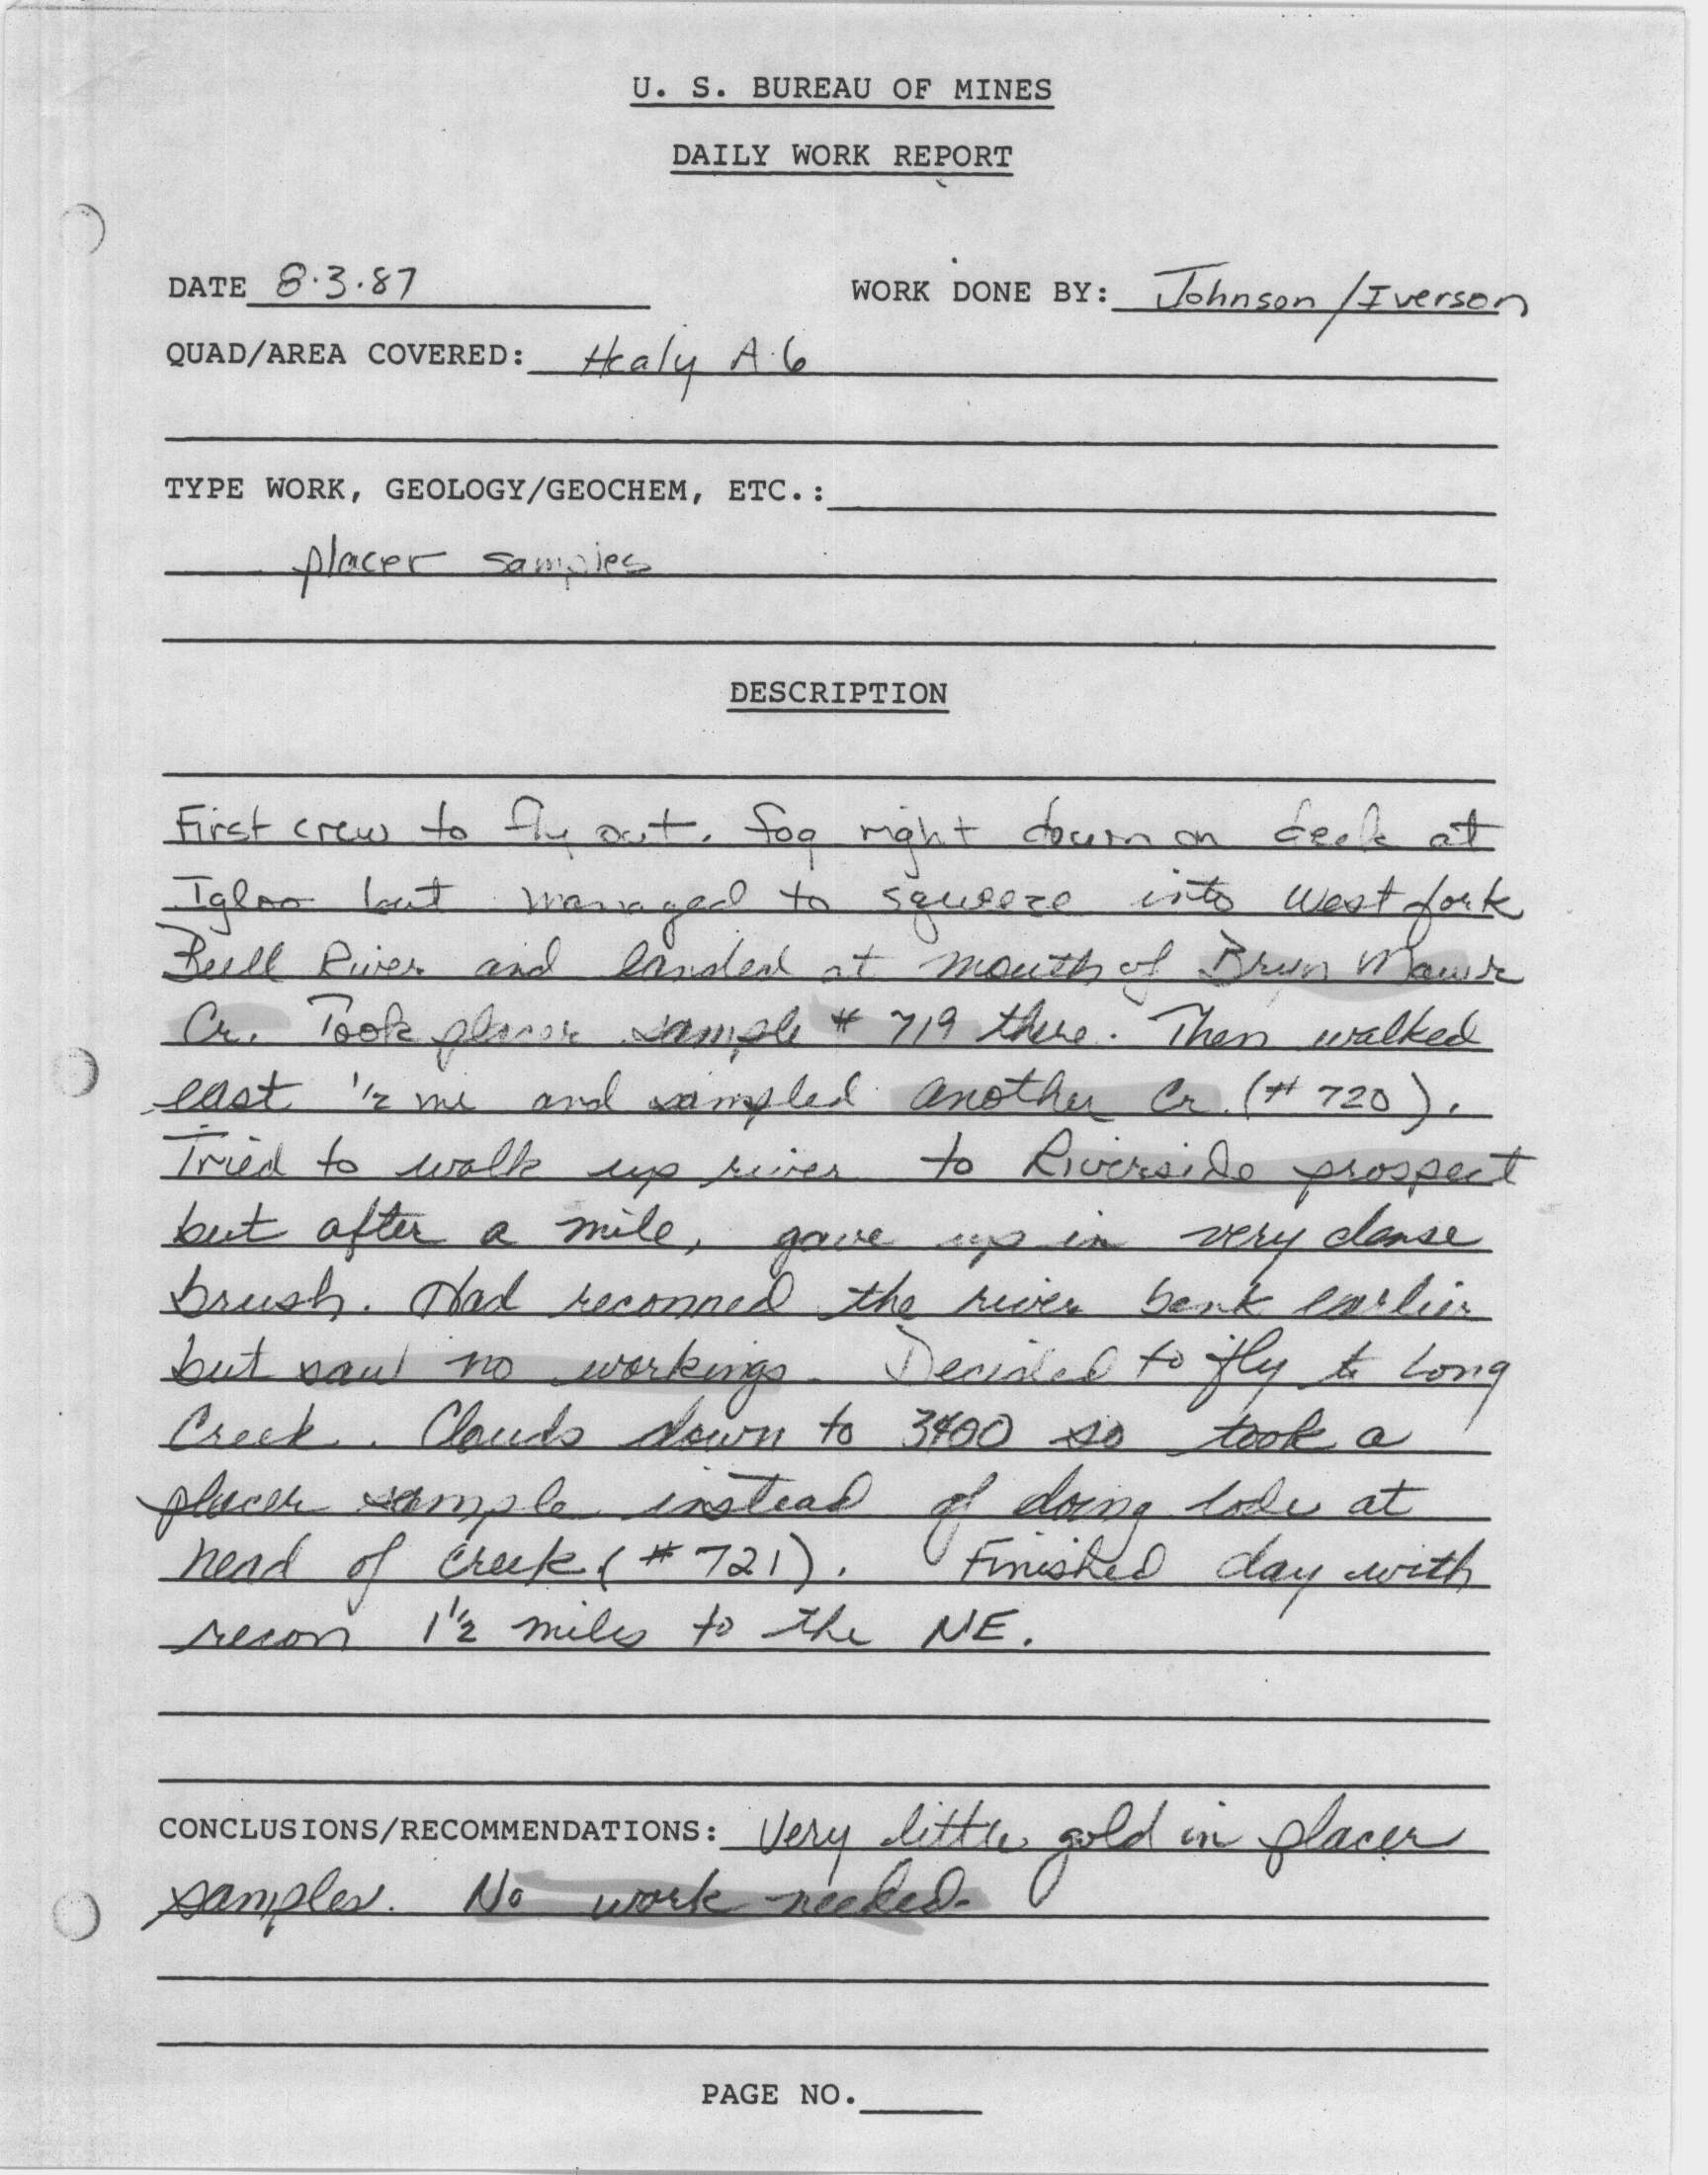 U. S. BUREAU OF MINES
DAILY WORK REPORT
DATE 8.3.87 WORK DONE BY: Johnson / Iverson
QUAD/AREA COVERED: Healy A.6
TYPE WORK, GEOLOGY/GEOCHEM, ETC.:
placer samples
DESCRIPTION
First crew to fly out. Fog right down on deck at
Igloo but managed to squeeze into West fork
Bull River and landed at mouth of Bryn Mawr
Cr. Took placer sample # 719 there. Then walked
east 1/2 mi and sampled another Cr. (# 720).
Tried to walk up river to Riverside prospect
but after a mile, gave up in very dense
brush. Had reconned the river bank earlier
but saw no workings. Decided to fly to Long
Creek. Clouds down to so took a
placer sample instead of doing lode at
head of creek (# 721). Finished day with
recon 1 1/2 miles to the NE.
CONCLUSIONS/RECOMMENDATIONS: Very little gold in placer
samples. No work needed.
PAGE NO.